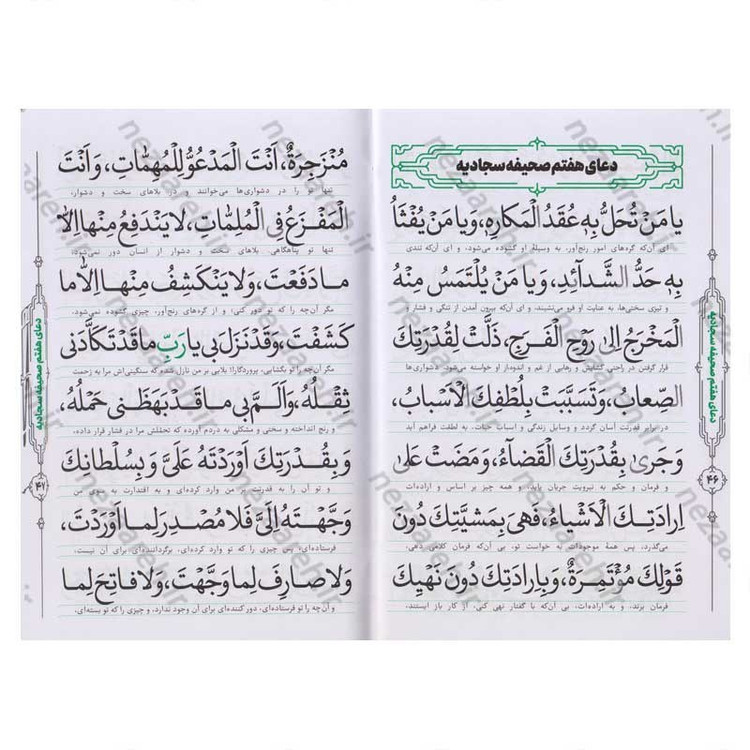 دعای هفتم صحیفه سجادیه
یا مَنْ تُحَلُّ بِهِ عُقَدُ الْمَکارِهِ، وَیا مَنْ یُفْثَأُ
ای آن‌که گره‌های امور رنج‌آور، به وسیله‌ی او گشوده می‌شود، و ای آن‌که تندی
بِهِ حَدُّ الشَّدآئِدِ، وَیا مَنْ یُلْتَمَسُ مِنْهُ
و تیزی سختی‌ها، به عنایت او فرو می‌نشیند، و ای آن‌که بیرون آمدن از تنگی و فشار و
الْمَخْرَجُ اِلیٰ رَوْحِ الْفَرَجِ، ذَلَّتْ لِقُدْرَتِكَ
قرار گرفتن در راحتی گشایش و رهایی از غم و اندوه، از او خواسته می‌شود. دشواری‌ها
الصِّعابُ، وَتَسَبَّبَتْ بِلُطْفِكَ الْاَسْبابُ،
در برابر قدرتت آسان گردد و وسایل زندگی و اسباب حیات، به لطفت فراهم آید
وَ جَریٰ بِقُدْرَتِكَ الْقَضآءُ، وَ مَضَتْ عَلیٰ
و فرمان و حکم به نیرویت جریان یابد، و همه چیز بر اساس و اراده‌ات
اِرادَتِكَ الْاَشْیآءُ، فَهِیَ بِمَشِیَّتِكَ دُونَ
می‌گذرد. پس همهٔ موجودات به خواست تو، بی آن‌که فرمان کلامی دهی،
قَوْلِكَ مُؤْتَمِرَةٌ، وَبِاِرادَتِكَ دُونَ نَهْیِكَ
فرمان برند، و به اراده‌ات، بی آن‌که با گفتار نهی کنی، از کار باز ایستند.
دعای هفتم صحیفه سجادیه
۴۶
مُنْزَجِرَةٌ، اَنْتَ الْمَدْعُوُّ لِلْمُهِمّاتِ، وَ اَنْتَ
تنها تو را در دشواری‌ها می‌خوانند و در بلاهای سخت و دشوار،
الْمَفْزَعُ فِی الْمُلِمّاتِ، لا یَنْدَفِعُ مِنْها اِلّا
تنها تو پناهگاهی. بلاهای سخت و دشوار از انسان دور نمی‌شود،
ما دَفَعْتَ، وَلا یَنْکَشِفُ مِنْها اِلّا ما
مگر آن‌چه را که تو دور کنی؛ و از گره‌های رنج‌آور، چیزی گشوده نمی‌شود،
کَشَفْتَ، وَقَدْ نَزَلَ بی یا رَبِّ ما قَدْ تَکَأَّدَنی
مگر آن‌چه را که تو بگشایی. پروردگارا! بلایی بر من نازل شده که سنگینی‌اش مرا به زحمت
ثِقْلُهُ، وَ اَلَمَّ بی ما قَدْ بَهَظَنی حَمْلُهُ،
و رنج انداخته و سختی و مشکلی به دردم آورده که تحملش مرا در فشار قرار داده.
وَ بِقُدْرَتِكَ اَوْرَدْتَهُ عَلَیَّ وَ بِسُلْطانِكَ
و تو آن را به قدرتت بر من وارد کرده‌ای و به اقتدارت به سوی من
وَجَّهْتَهُ اِلَیَّ فَلا مُصْدِرَ لِما اَوْرَدْتَ،
فرستاده‌ای، پس چیزی را که تو وارد کرده‌ای، برگرداننده‌ای برای آن نیست،
وَلا صارِفَ لِما وَجَّهْتَ، وَلا فاتِحَ لِما
و آن‌چه را تو فرستاده‌ای، دور کننده‌ای برای آن وجود ندارد، و چیزی را که تو بسته‌ای،
دعای هفتم صحیفه سجادیه
۴۷
nezaareh.ir